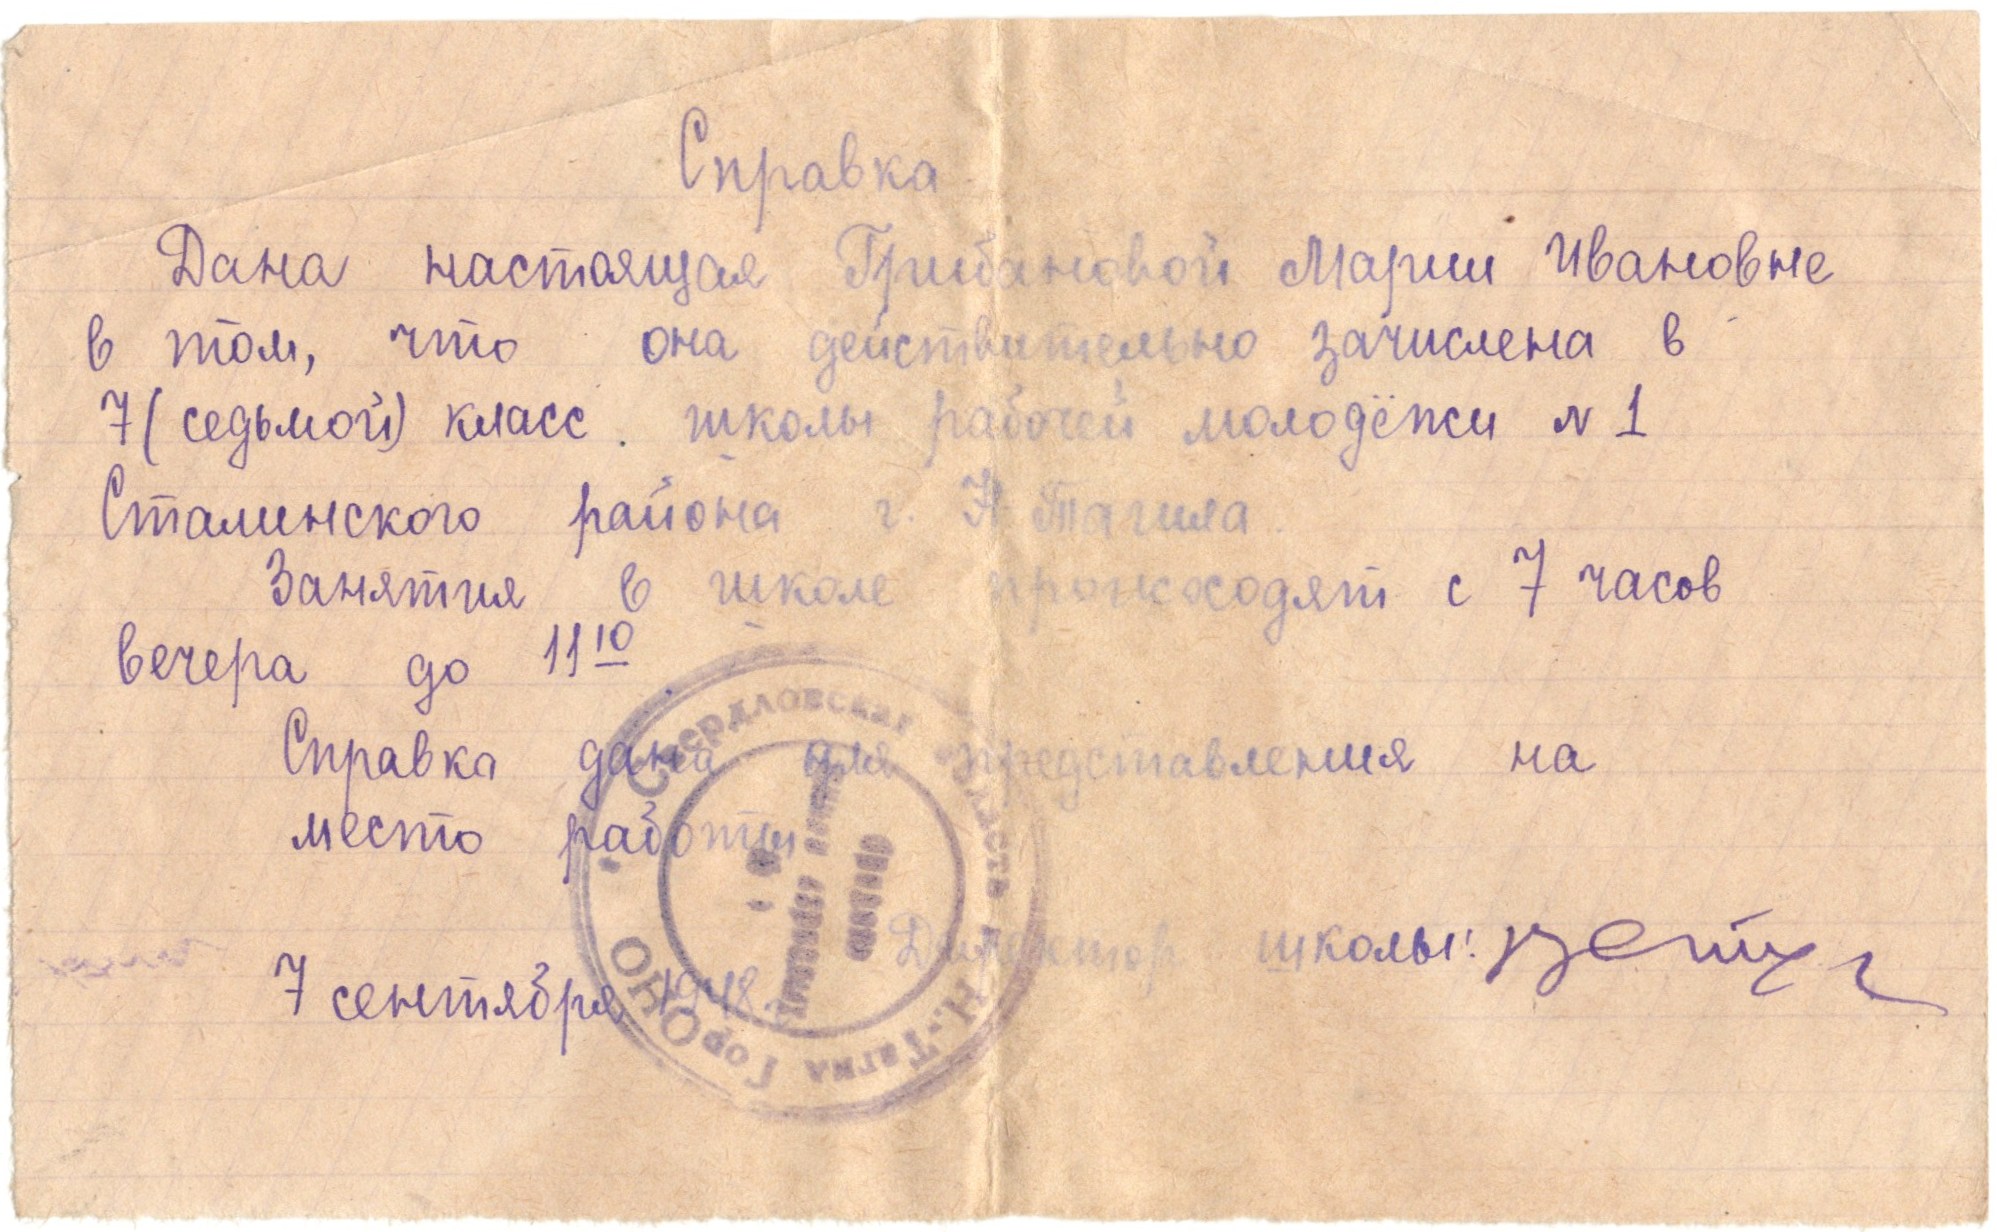 Справка
Дана настоящая Грибановой Марии Ивановне
в том, что она действительно зачислена в
7 (седьмой) класс. школы рабочей молодёжи N 1
Сталинского района г. Н Тагила.
Занятия в школе происходят с 7 часов
вечера до 11 10
Справка дана для представления на
место работы
Директор школы:
7 сентября 1948
Свердловская область Н.-Тагил ГорОНО